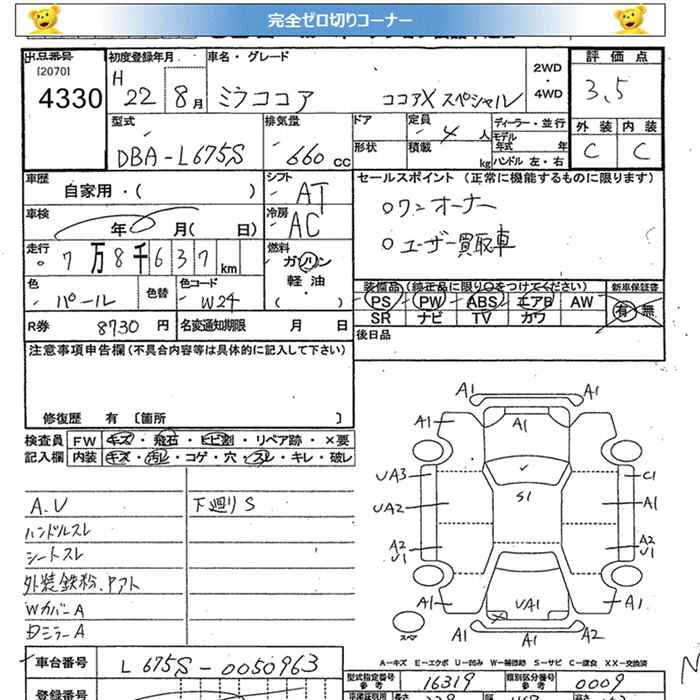 完全ゼロ切りコーナー
出品番号 初度登録年月 車名・グレード 2WD・4WD 評価点
[2070]
4330 H 22 8月 ミラココア ココアX スペシャル 3.5
型式 排気量 ドア 定員 4人 ディーラー・並行 外装 内装
DBA-L675S 660cc 形状 積載 kg モデル年式 年 C C
ハンドル 左・右
車歴 シフト セールスポイント (正常に機能するものに限ります)
自家用・( ) AT
車検 年 月( 日) 冷房 AC ○ワンオーナー
走行 7万8千637km 燃料 ガソリン・軽油・( ) ○ユーザー買取車
色 パール 色替 色コード W24 装備品(純正品に限り○をつけてください) 新車保証書
PS PW ABS エアB AW 有・無
R券 8730円 名変通知期限 月 日 SR ナビ TV カワ
注意事項申告欄(不具合内容等は具体的に記入して下さい) 後日品
修復歴 有 〔箇所 〕
検査員 FW キズ・飛石・ヒビ割・リペア跡・×要
記入欄 内装 キズ・汚レ・コゲ・穴・スレ・キレ・破レ
A.U 下廻りS
ハンドルスレ
シートスレ
外装鉄粉、
WカバーA
DミラーA
A1 A1
A1 A1 A1
UA3 C1
S1
UA2 A1
A2 U1 A2 U1
A1 UA1 A1
スペア A1 A1 A2
A-キズ E-エクボ U-凹み W-補修跡 S-サビ C-腐食 XX-交換済
車台番号 L675S-0050963 型式指定番号 参考 16319 類別区分番号 参考 0009
登録番号